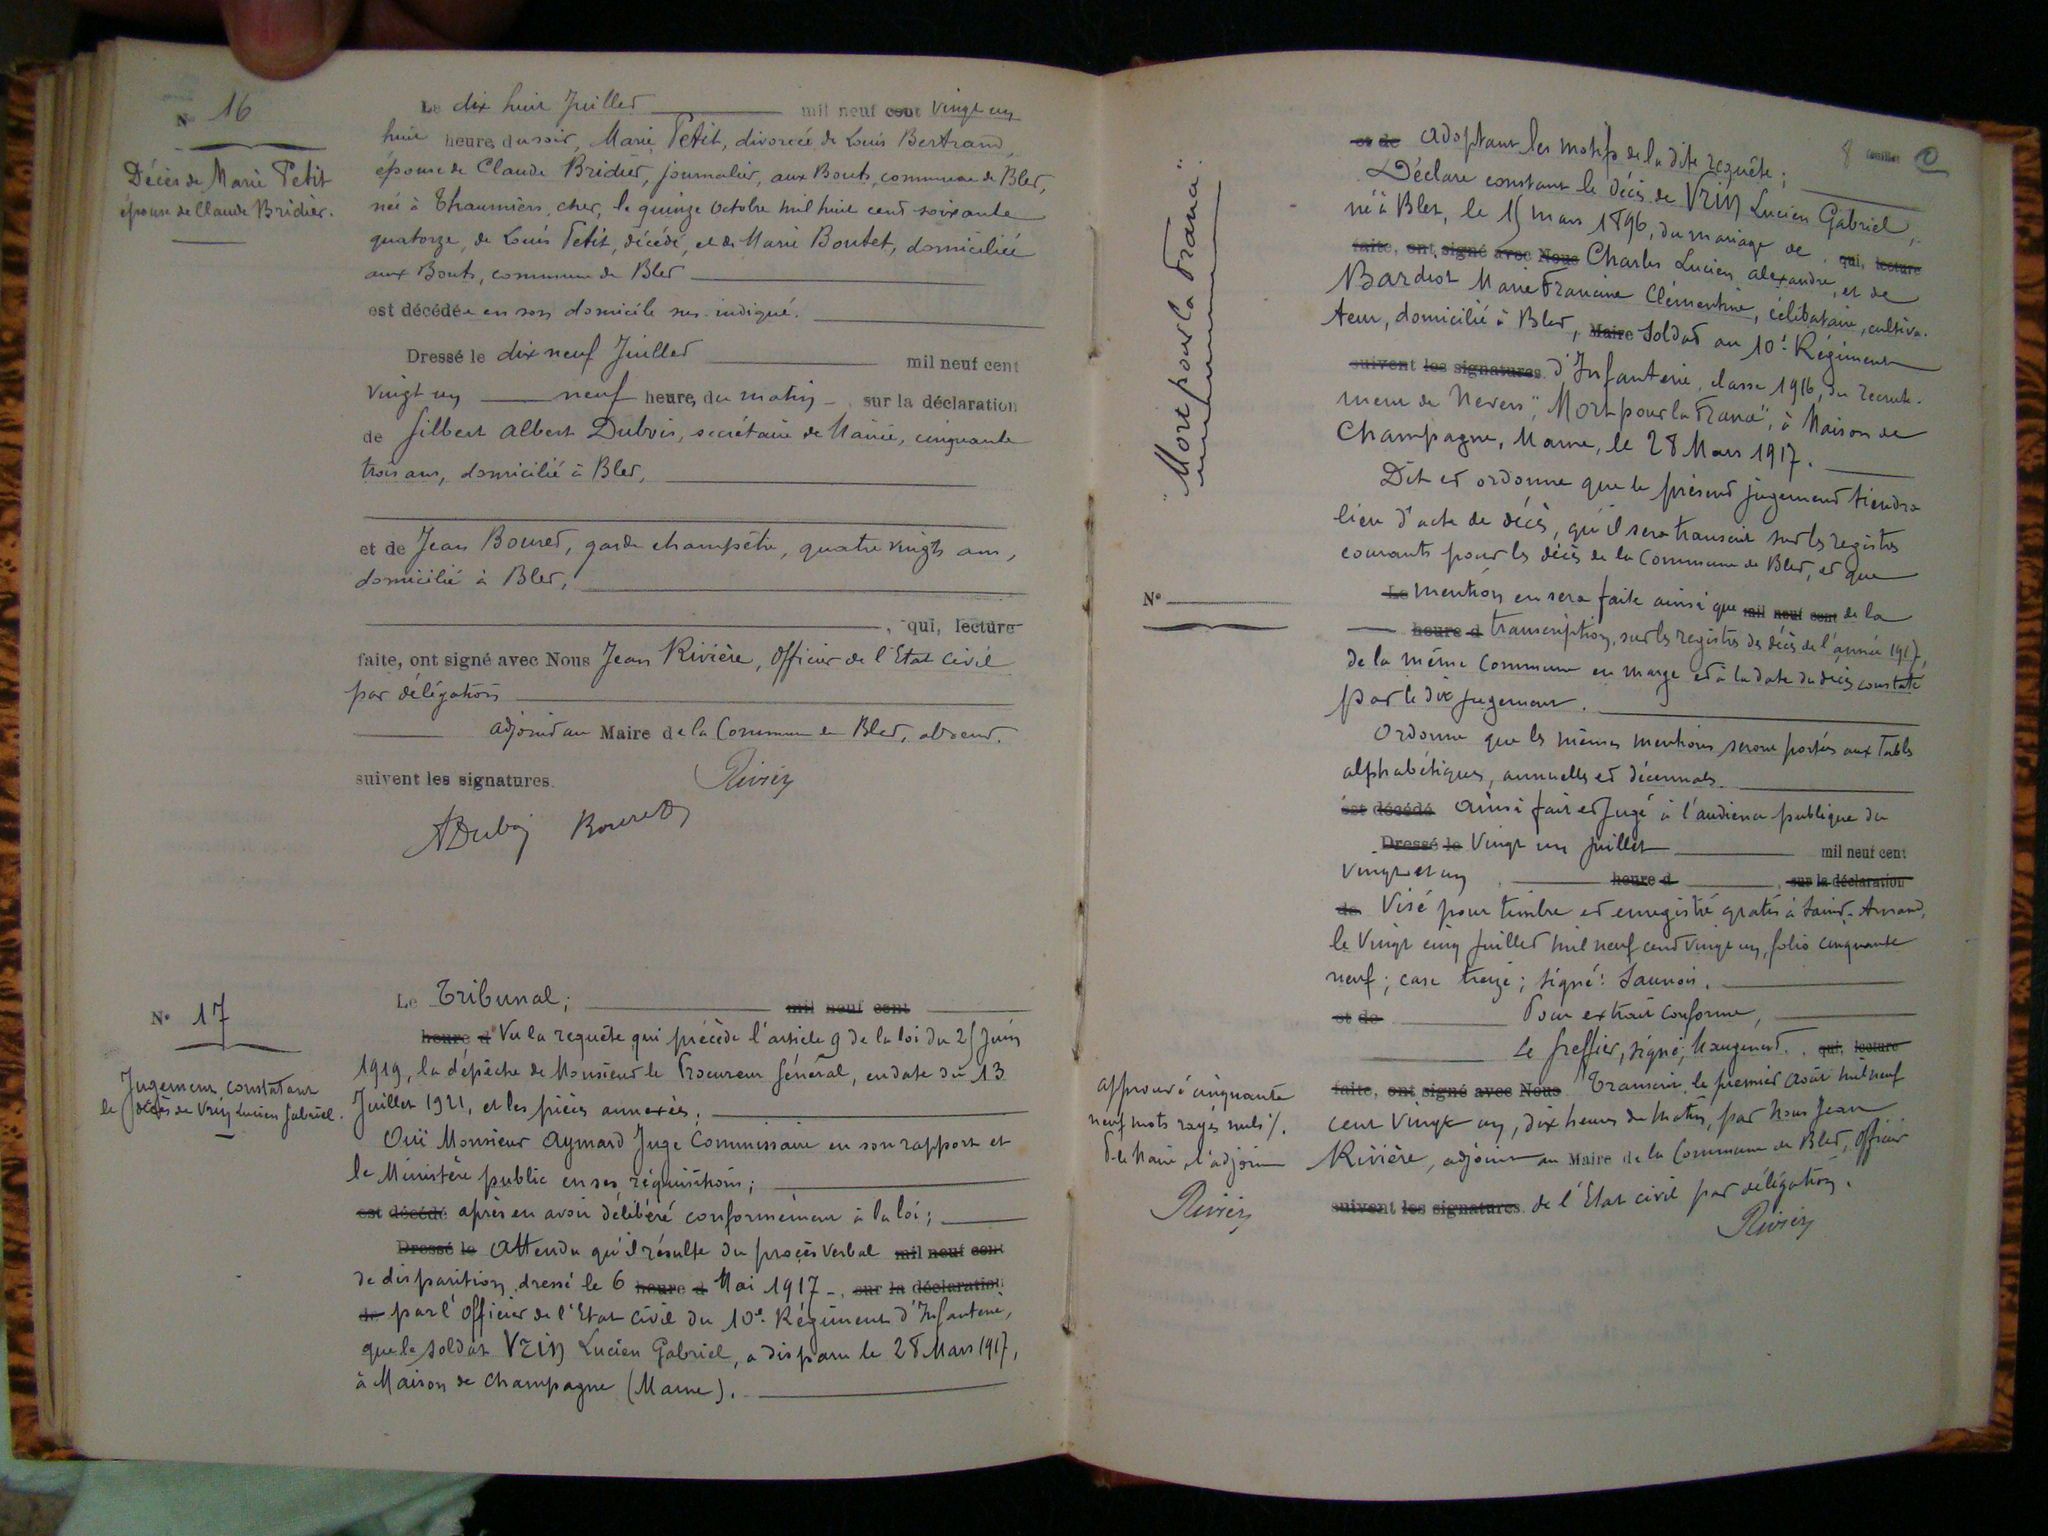 N° 16
Décès de Marie Petit
épouse de Claude Bridier.
Le dix huit Juillet mil neuf cent vingt un
huit heure, du soir, Marie Petit, divorcée de Louis Bertrand,
épouse de Claude Bridier, journalier, aux Bouts, commune de Blet,
née à Thaumiers, cher, le quinze octobre mil huit cent soixante
quatorze, de Louis Petit, décédé, et de Marie Boutet, domiciliée
aux Bouts, commune de Blet
est décédée en son domicile sus-indiqué.
Dressé le dix neuf Juillet mil neuf cent
vingt un neuf heure, du matin, sur la déclaration
de Gilbert Albert Dubois, secrétaire de Mairie, cinquante
trois ans, domicilié à Blet,
et de Jean Bouret, garde champêtre, quatre vingts ans,
domicilié à Blet,
, qui, lecture
faite, ont signé avec Nous Jean Rivière, Officier de l'Etat civil
par délégation
adjoint au Maire de la Commune de Blet, absent.
suivent les signatures. Rivière
ADubois Bouret
N° 17
Jugement constatant
le décès de Vrin Lucien Gabriel.
Le Tribunal; mil neuf cent
heure d Vu la requête qui précède l'article 9 de la loi du 25 Juin
1919, la dépêche de Monsieur le Procureur Général, en date du 13
Juillet 1921, et les pièces annexées;
Ouï Monsieur Aymard Juge Commissaire en son rapport et
le Ministère public en ses réquisitions;
est décédé après en avoir délibéré conformément à la loi;
Dressé le Attendu qu'il résulte du procès verbal mil neuf cent
de disparition, dressé le 6 heure d Mai 1917 -, sur la déclaration
de par l'Officier de l'Etat civil du 10e Régiment d'Infanterie,
que le soldat Vrin Lucien Gabriel, a disparu le 28 Mars 1917,
à Maison de Champagne (Marne).
8
"Mort pour la France"
et de adoptant les motifs de la dite requête;
Déclare constant le décès de Vrin Lucien Gabriel,
né à Blet, le 15 mars 1896, du mariage de , qui, lecture
faite, ont signé avec Nous Charles Lucien Alexandre, et de
Bardiot Marie Francine Clémentine, célibataire, cultiva-
teur, domicilié à Blet, Maire Soldat au 10e Régiment
suivent les signatures. d'Infanterie, classe 1916, du recrute-
ment de Nevers, "Mort pour la France", à Maison de
Champagne, Marne, le 28 Mars 1917.
Dit et ordonne que le présent jugement tiendra
lieu d'acte de décès, qu'il sera transcrit sur les registres
courants pour les décès de la Commune de Blet, et que
N°
Le mention en sera faite ainsi que mil neuf cent de la
heure d transcription, sur les registres des décès de l'année 1917,
de la même Commune en marge et à la date du décès constaté
par le dit jugement.
Ordonne que les mêmes mentions seront portées aux Tables
alphabétiques, annuelles et décennales.
est décédé Ainsi fait et Jugé à l'audience publique du
Dressé le Vingt un Juillet mil neuf cent
vingt et un heure d , sur la déclaration
de Visé pour timbre et enregistré gratis à Saint-Amand,
le Vingt cinq Juillet mil neuf cent vingt un, folio cinquante
neuf; case treize; signé: Saunois.
et de Pour extrait conforme,
Le Greffier, signé; Maugenest. , qui, lecture
faite, ont signé avec Nous Transcrit le premier Août mil neuf
cent vingt un, dix heures du matin, par Nous Jean
Rivière, adjoint au Maire de la Commune de Blet, Officier
suivent les signatures. de l'Etat civil par délégation.
Rivière
approuvé cinquante
neuf mots rayés nuls /.
P. le Maire, l'adjoint
Rivière